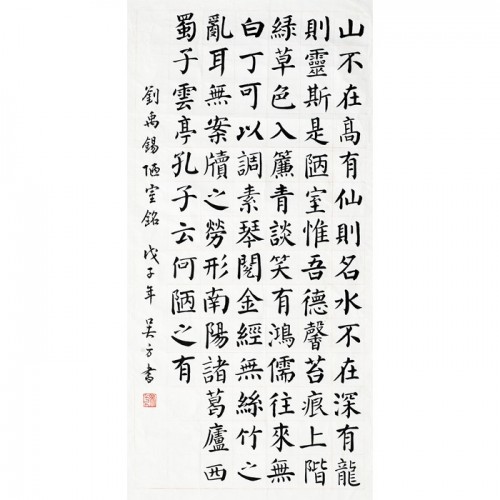 山不在高有仙則名水不在深有龍
則靈斯是陋室惟吾德馨苔痕上階
綠草色入簾青談笑有鴻儒往來無
白丁可以調素琴閱金經無絲竹之
亂耳無案牘之勞形南陽諸葛廬西
蜀子雲亭孔子云何陋之有
劉禹錫陋室銘 戊子年 吳方書